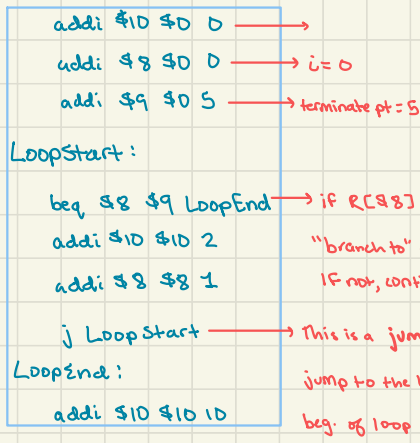 addi $10 $0 0 →
addi $8 $0 0 → i=0
addi $9 $0 5 → terminate pt = 5
LoopStart:
beq $8 $9 LoopEnd → if R[$8]
addi $10 $10 2 "branch to"
addi $8 $8 1 IF not,
j LoopStart → This is a
LoopEnd: jump to the
addi $10 $10 10 beg. of loop